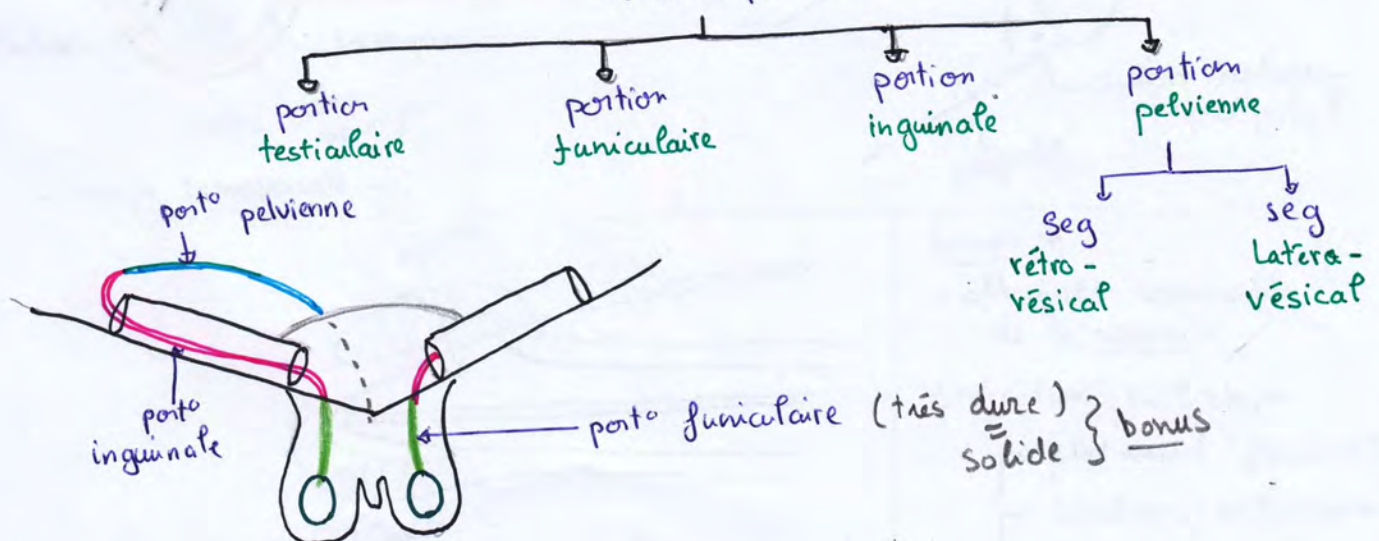 portion
testiculaire
portion
funiculaire
portion
inguinale
portion
pelvienne
Seg
rétro-
vésical
seg
Latéro-
vésical
port° pelvienne
port°
inguinale
port° funiculaire (très dure)
=
solide } bonus